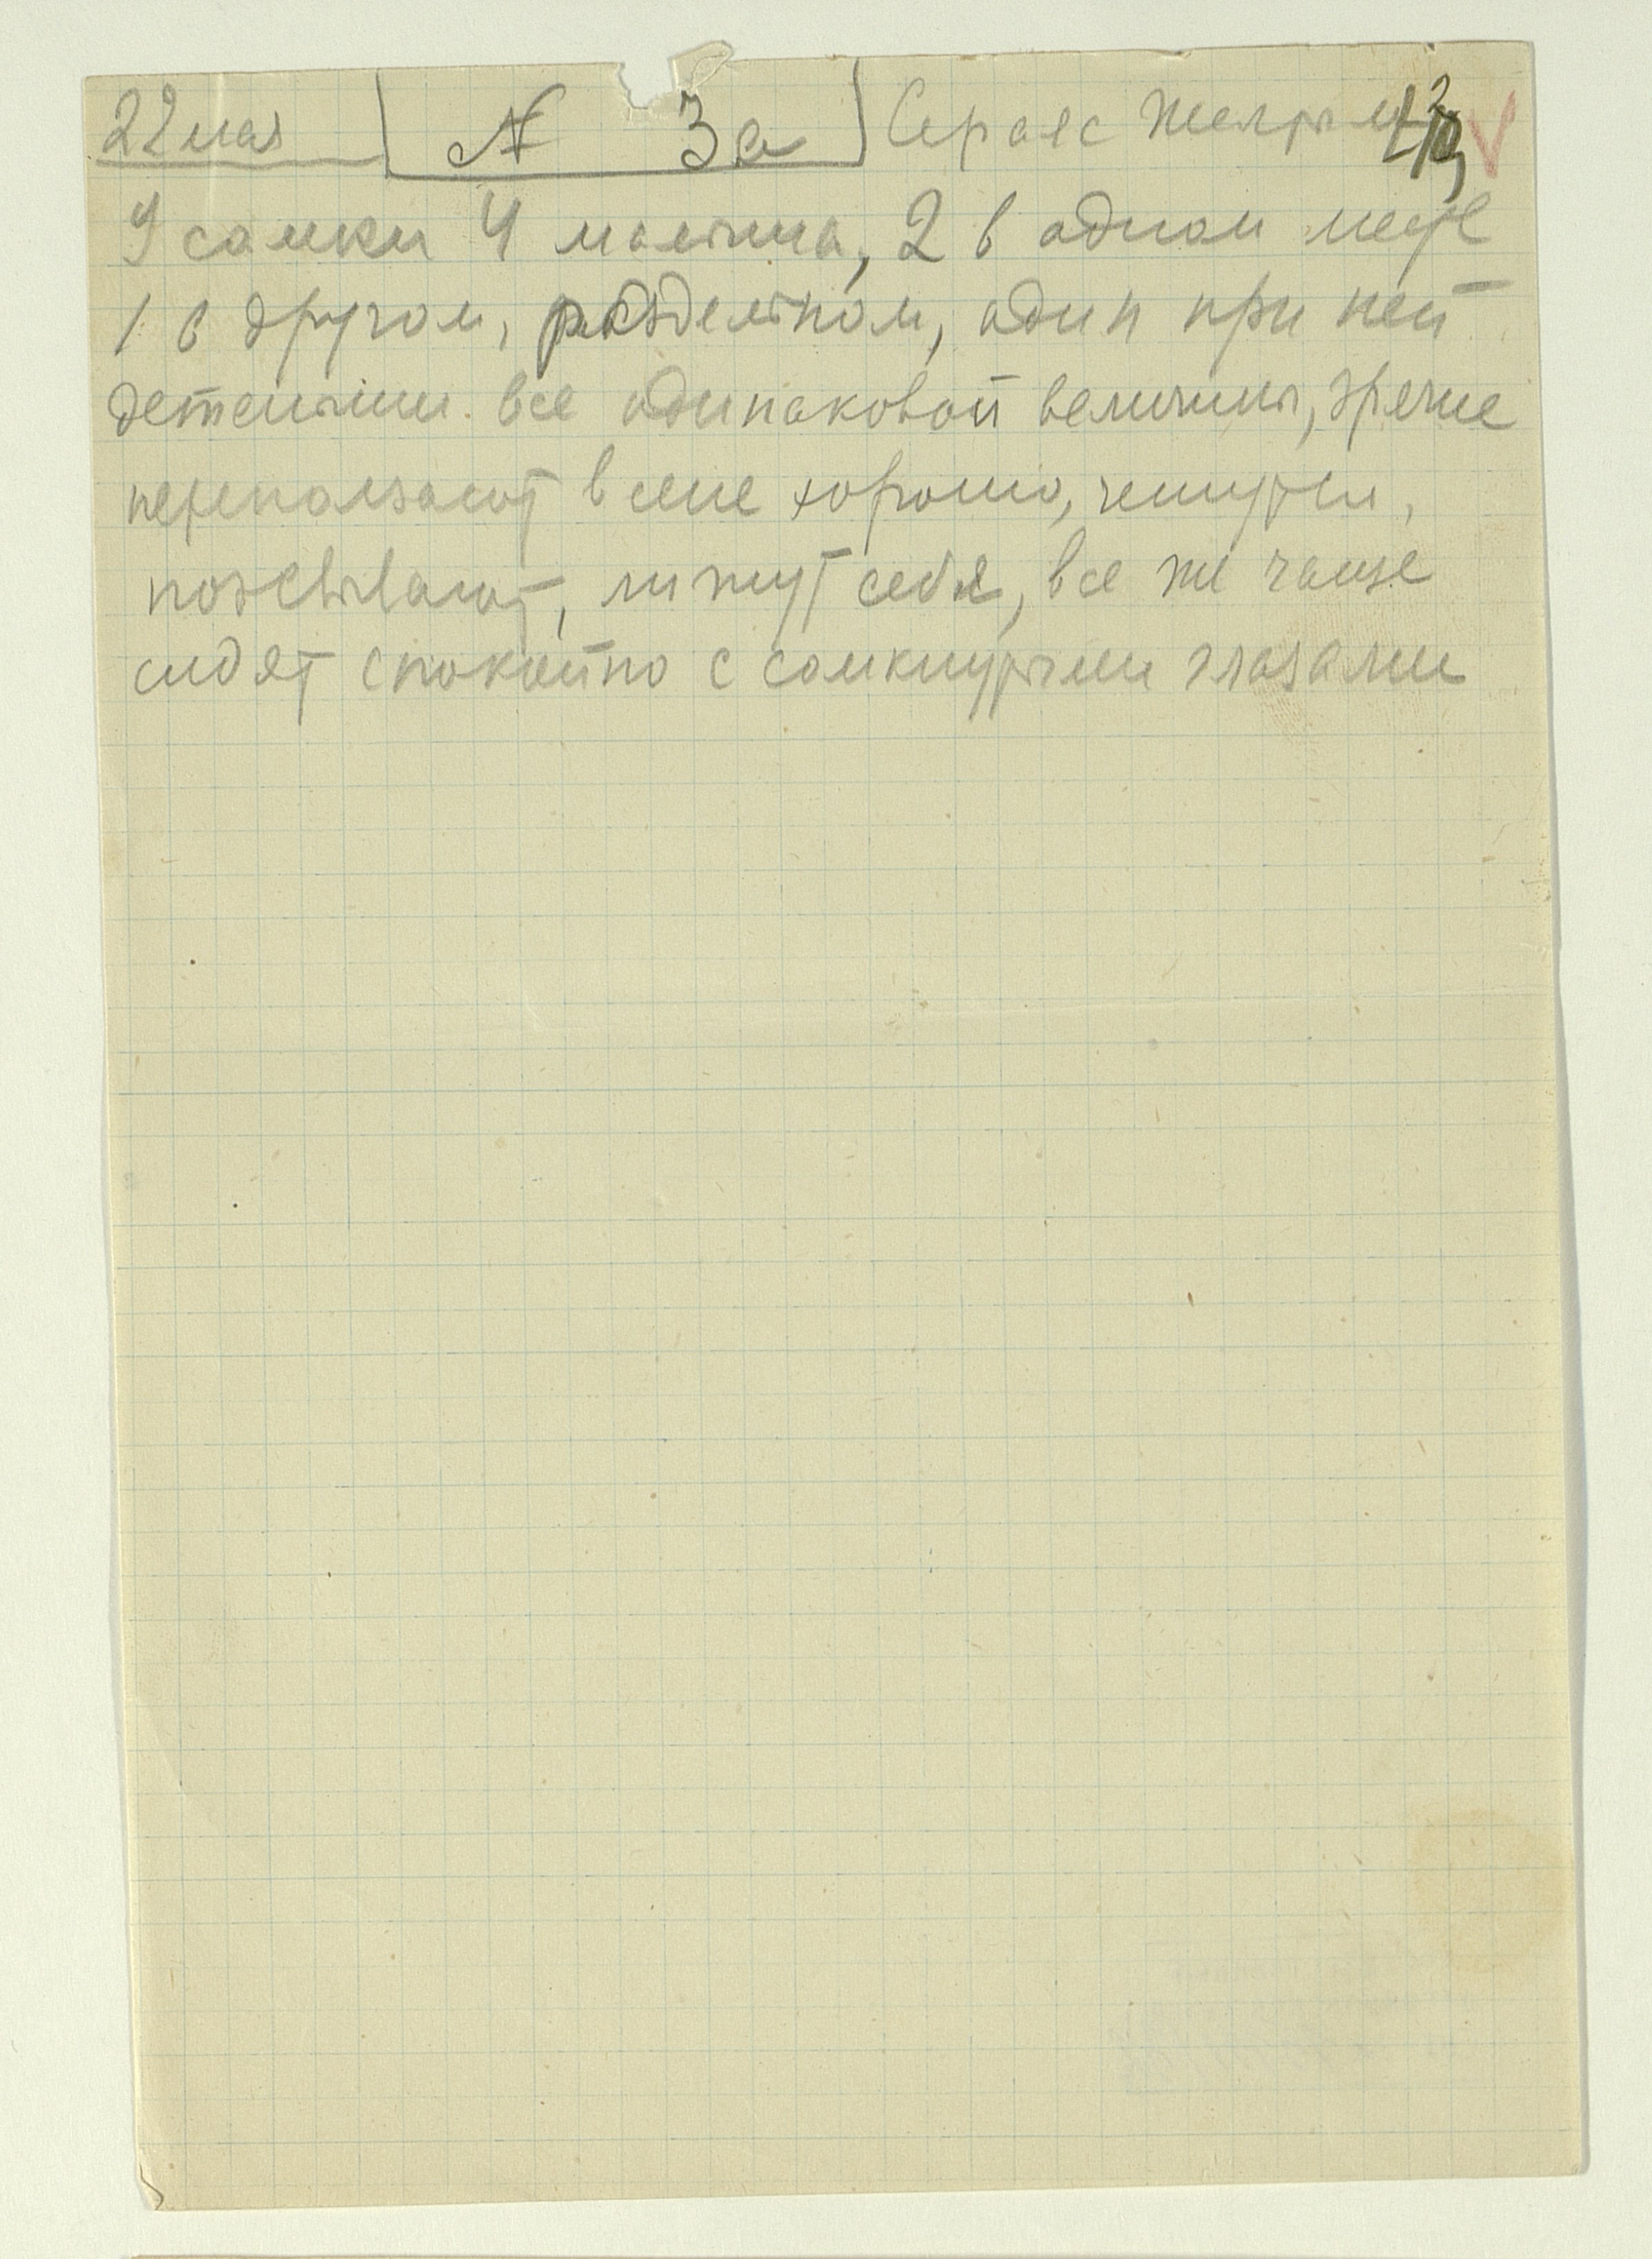 22 мая № 3а Серая с желтым
У самки 4 малыша, 2 в одном месте
1 в другом, раздельном, один при ней
детеныши все одинаковой величины, зрячие
переползают в сене хорошо, чешутся,
позевывают, лижут себя, все же чаще
сидят спокойно с сомкнутыми глазами